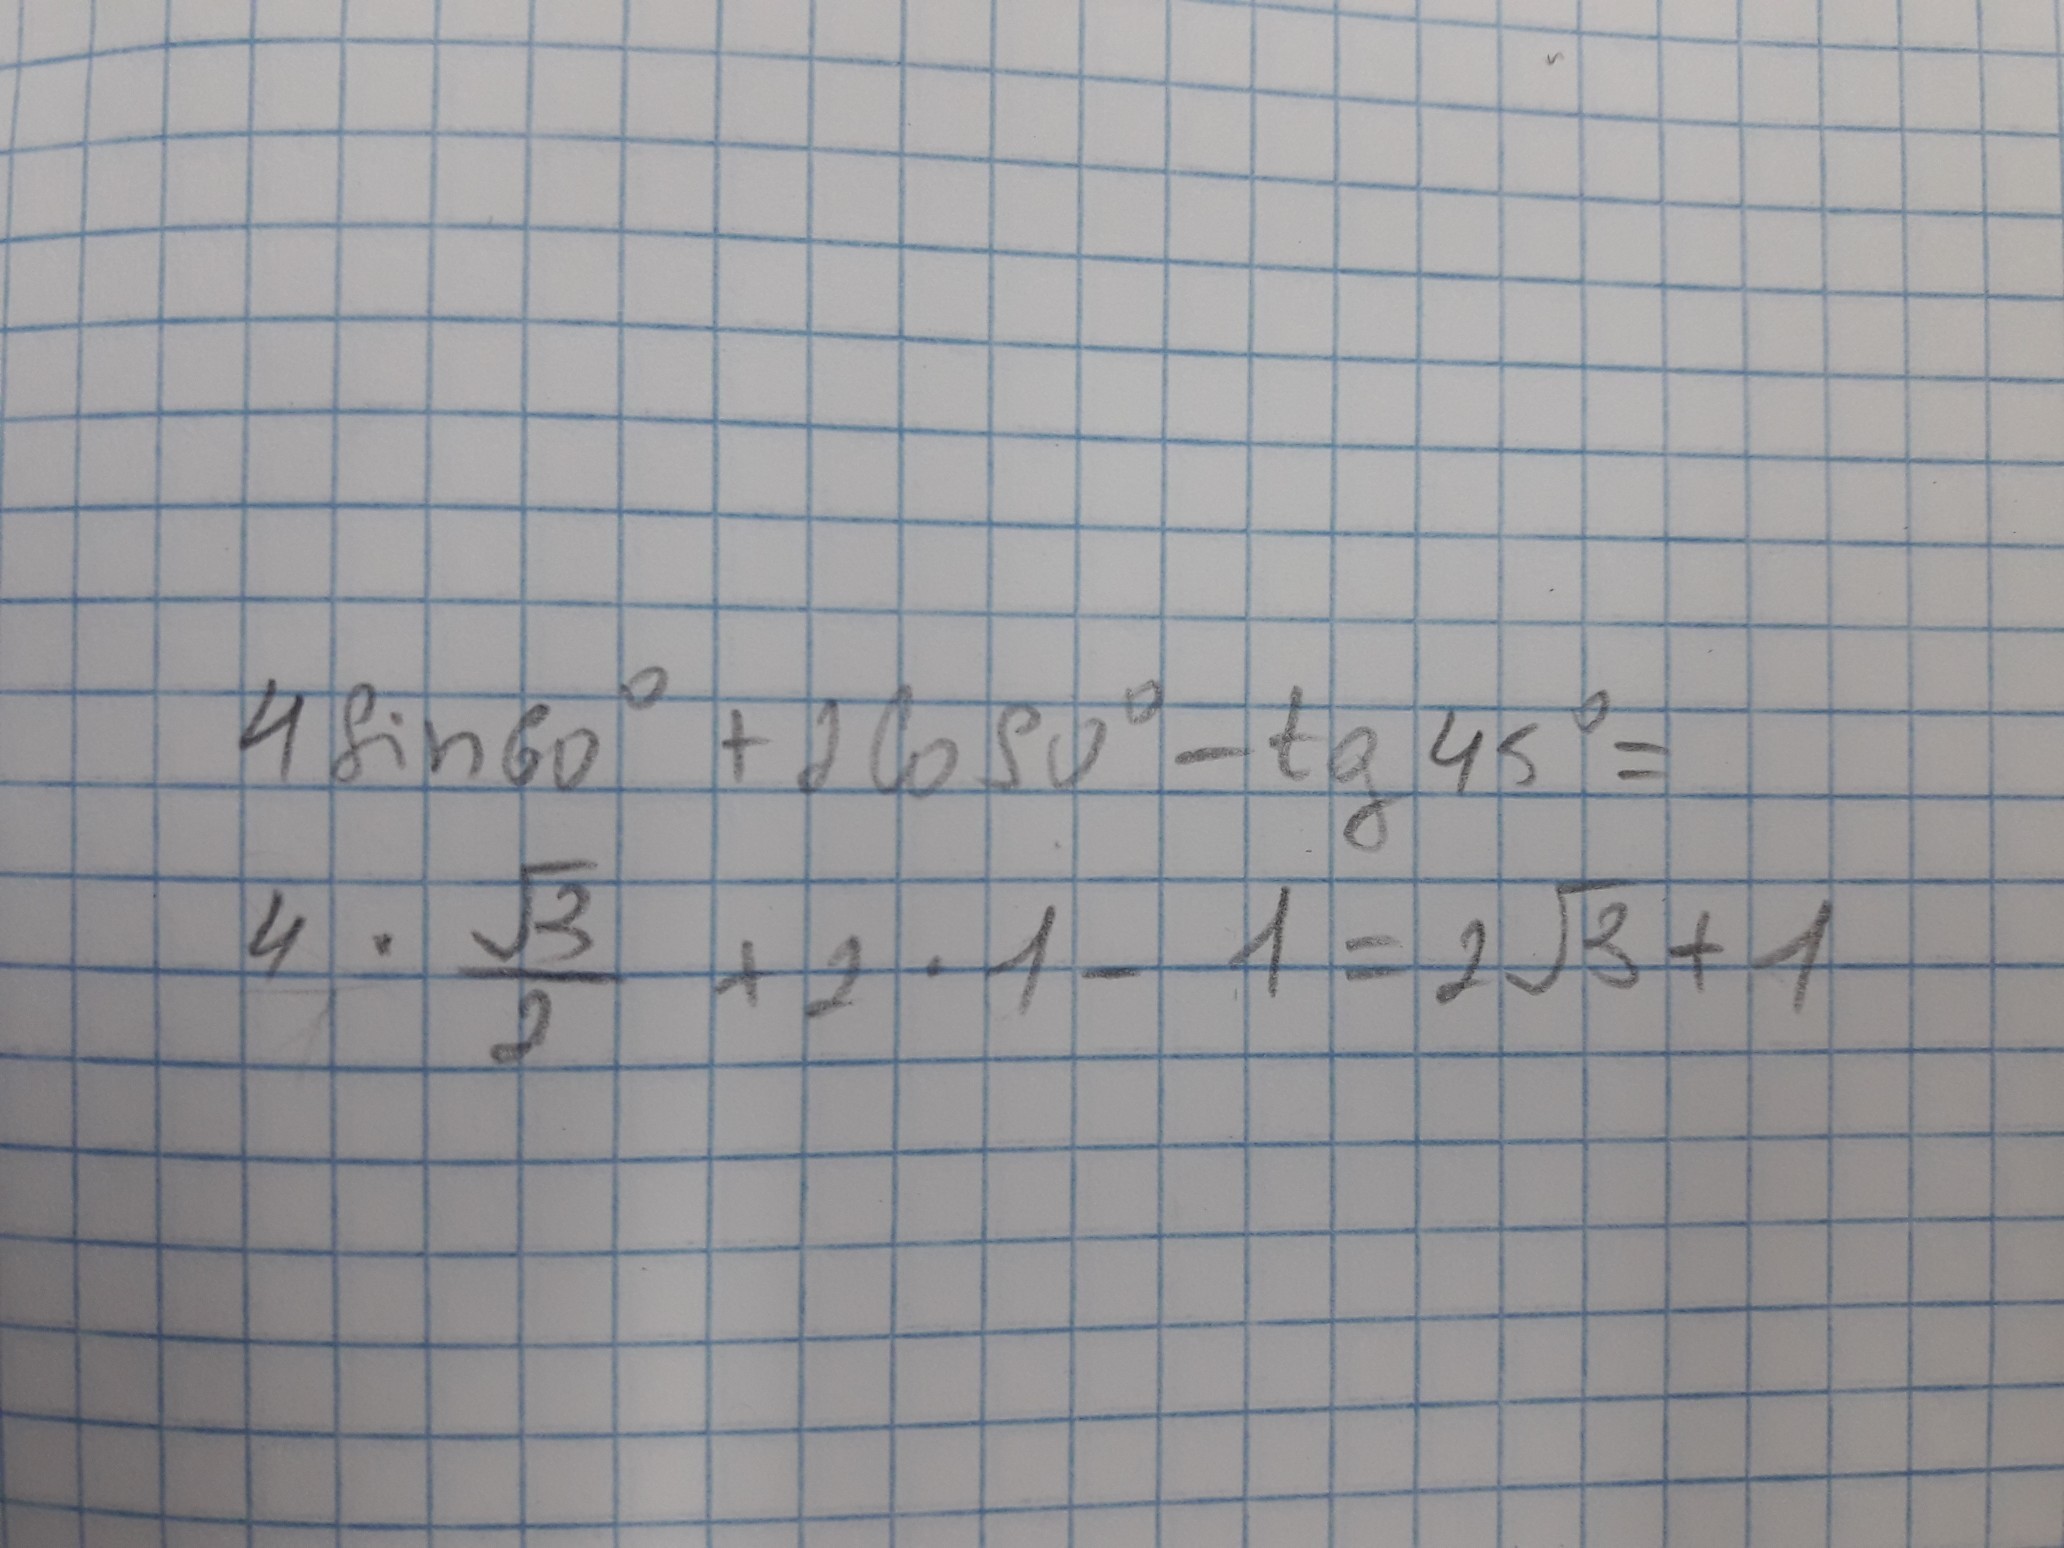 4 sin 60° + 2 cos 0° - tg 45° =
4 · √3/2 + 2 · 1 - 1 = 2√3 + 1